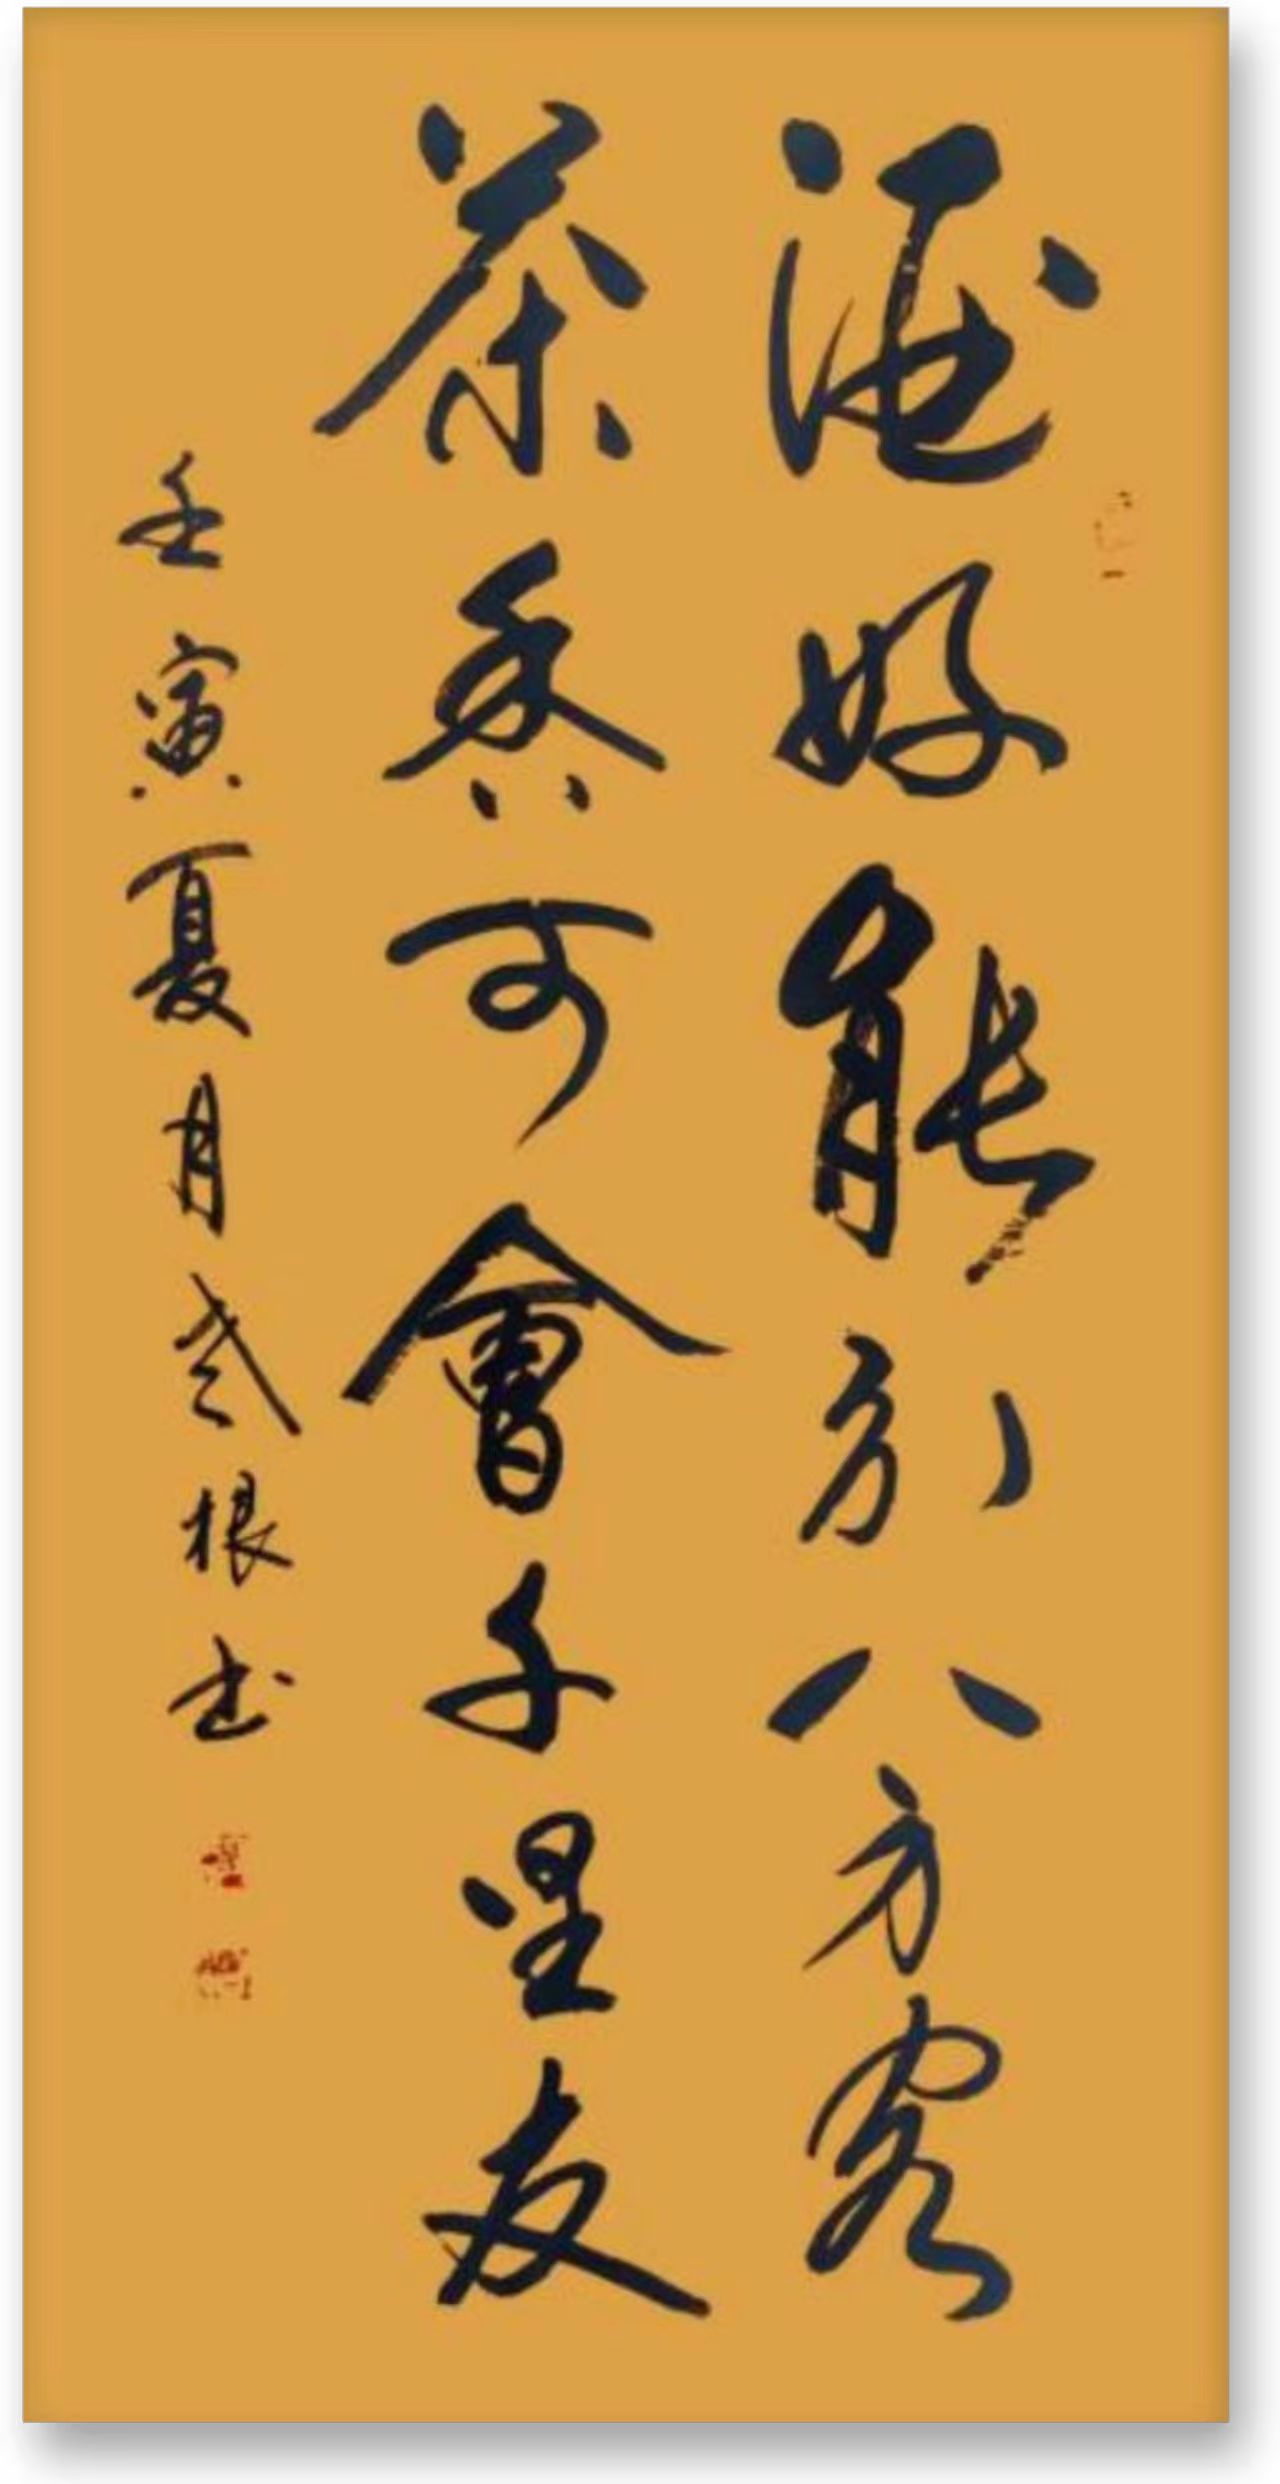 酒好能引八方客
茶香可會千里友
壬寅夏月贰根书